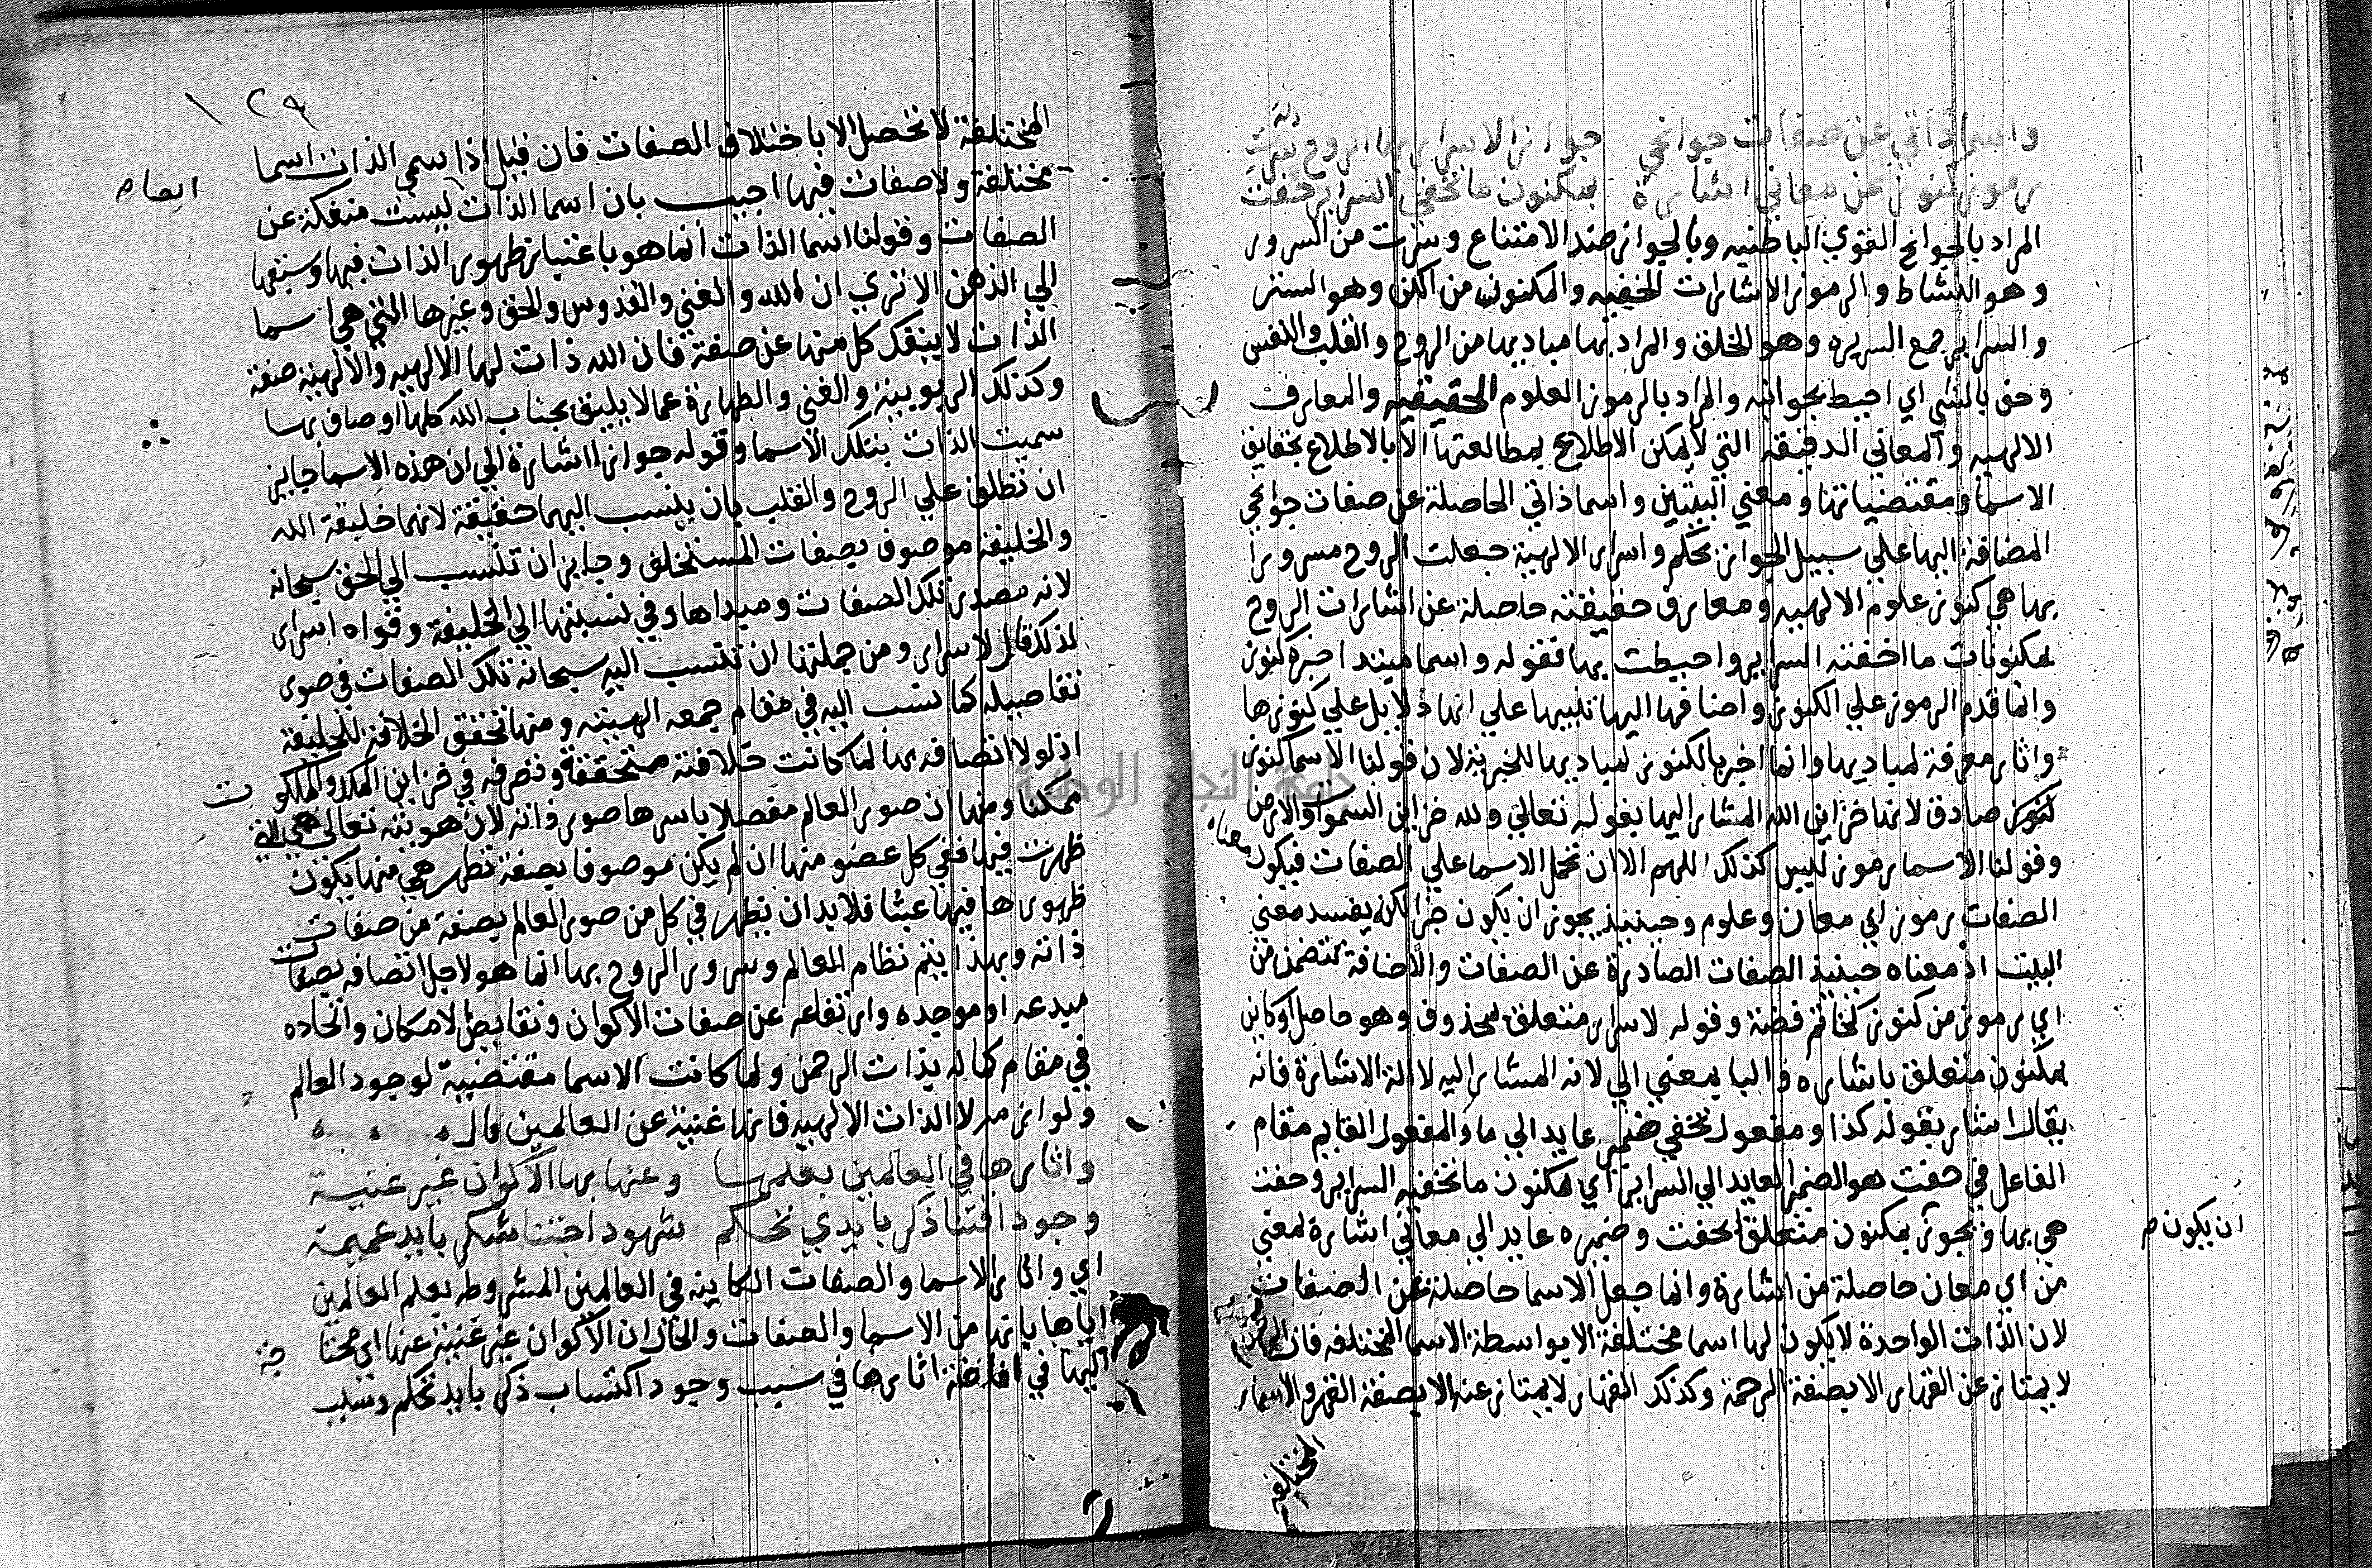 واسما ذاتي عن صفات جوانحي جوازا لاسرار بها الروح سرت
رموز كنوز عن معاني اشارة بمكنون ما تخفي السراير حفت
المراد بالجوانح القوي الباطنيه وبالجواز ضد الامتناع وسرت من السرور
وهو النشاط والرموز الاشارات الخفيه والمكنون من اكن وهو الستر
والسراير جمع السريره وهو الخلق والمراد بها مباديها من الروح والقلب والنفس
وحف بالشي اي احيط بجوانبه والمراد بالرموز العلوم الحقيقيه والمعارف
الالهيه والمعاني الدقيقه التي لا يمكن الاطلاع بمطالعتها الا بالاطلاع بحقايق
الاسما ومقتضياتها ومعني البيتين واسما ذاتي الحاصلة عن صفات جوانحي
المضافة اليها علي سبيل الجواز بحكم واسرار الالهية جعلت الروح مسرورا
بها هي كنوز علوم الالهيه ومعارف حقيقته حاصلة عن اشارات الروح
بمكنونات ما اخفته السراير واحيطت بها فقوله واسما مبتدا خبره كنوز
وانما قدم الرموز علي الكنوز واضافها اليها تنبيها علي انها دلايل علي كنوزها
واثار معرفة لمباديها وانما اخبر بالكنوز لمباديها للخبرية لان قولنا الاسما كنوز
كنوز صادق لانها خزاين الله المشار اليها بقوله تعالي ولله خزاين السموات والارض
وقولنا الاسما رموز ليس كذلك اللهم الا ان تحمل الاسما علي الصفات فيكون معناه
الصفات رموز الي معان وعلوم وحينيذ يجوز ان يكون خبرا لكن يفسد معني
البيت اذ معناه حينيذ الصفات الصادرة عن الصفات والاضافة تتضمن من
اي رموز من كنوز كخاتم فضة وقوله لاسرار متعلق بمحذوف وهو حاصل او كاين
بمكنون متعلق باشاره والبا بمعني الي لانه المشار اليه لا الة الاشارة فانه
يقال اشار بقوله كذا ومفعول تخفي ضمير عايد الي ما والمفعول القايم مقام
الفاعل في حفت هو الضمير العايد الي السراير اي بمكنون ما تخفيه السراير وحفت
هي بها ويجوز بمكنون متعلق بحفت وضميره عايد الي معاني اشارة لمعني
ان يكون صح
من اي معان حاصلة من اشارة وانما جعل الاسما حاصلة عن الصفات
لان الذات الواحدة لا يكون لها اسما مختلفة الا بواسطة الاسما المختلفه فان
لا يمتاز عن القهار الا بصفة الرحمة وكذلك القهار لا يمتاز عنه الا بصفة القهر والاسما
المختلفة
٢٩
المختلفة لا تحصل الا باختلاف الصفات فان قيل اذا سمي الذات اسما
مختلفة ولا صفات فيها اجيب بان اسما الذات ليست منفكة عن
الصفات وقولنا اسما الذات انما هو باعتبار ظهور الذات فيها وسبقها
الي الذهن الا تري ان الله والغني والقدوس والحق وغيرها التي هي اسما
الذات لا ينفك كل منها عن صفة فان الله ذات لها الالهيه والالهية صفة
وكذلك الربوبية والغني والطهارة عما لا يليق بجناب الله كلها اوصاف بها
سميت الذات بتلك الاسما وقوله جوازا اشارة الي ان هذه الاسما جايز
ان تطلق علي الروح والقلب بان ينسب اليهما حقيقة لانهما خليقة الله
والخليفة موصوف بصفات المستخلف وجايز ان تنسب الي الحق سبحانه
لانه مصدر تلك الصفات ومبداها وفي نسبتها الي الخليفة وقواه اسرار
لذلك قال لاسرار ومن جملتها ان تنسب اليه سبحانه تلك الصفات في صور
تفاصيله كما نسب اليه في مقام جمعه الهيبته ومنها تحقق الخلافة للخليفة
اذ لولا اتصافه بها لما كانت خلافته متحققة وتصرفه في خزاين الملك والملكوت
ممكنا ومنها ان صور العالم مفصلا باسرها صور ذاته لان هويته تعالي هي التي
ظهرت فيها ففي كل عضو منها ان لم يكن موصوفا بصفة تظهر هي منها يكون
ظهورها فيها عبثا فلا بد ان يظهر في كل من صور العالم بصفة من صفات
ذاته وبهذا يتم نظام العالم وسرور الروح بها انما هو لاجل اتصافه بصفات
مبدعه او موجده وارتفاعه عن صفات الاكوان ونقايص الامكان واتحاده
في مقام كماله بذات الرحمن ولما كانت الاسما مقتضيية لوجود العالم
ولوازمه لا الذات الالهيه فانها غنية عن العالمين قال
واثارها في العالمين بعلمها وعنها بها الاكوان غير غنيــة
وجود اقتنا ذكر بايدي تحكم شهود اجتنا شكر بايد عميمة
اي واثار الاسما والصفات الكاينه في العالمين المشروطه بعلم العالمين
اياها بانها من الاسما والصفات والحال ان الاكوان غير غنية عنها اي محتاجة
اليها في افاضة اثارها في سبب وجود اكتساب ذكر بايد تحكم وسلب